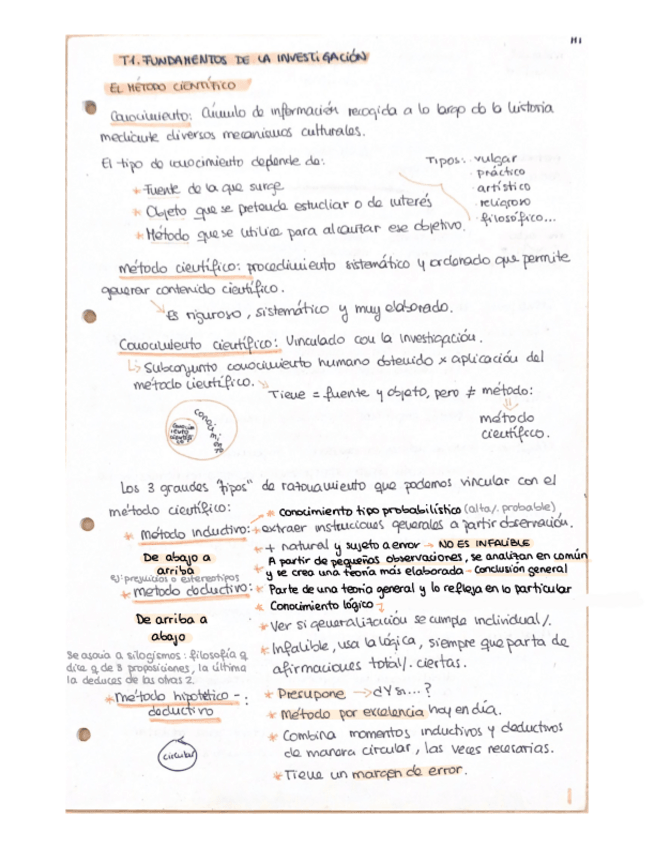 T1. FUNDAMENTOS DE LA INVESTIGACIÓN
EL MÉTODO CIENTÍFICO
Conocimiento: Cúmulo de información recogida a lo largo de la historia
mediante diversos mecanismos culturales.
El tipo de conocimiento depende de:
* Fuente de la que surge
* Objeto que se pretende estudiar o de interés
* Método que se utilice para alcanzar ese objetivo.
Tipos: · vulgar
· práctico
· artístico
· religioso
· filosófico...
Método científico: procedimiento sistemático y ordenado que permite
generar contenido científico.
Es riguroso, sistemático y muy elaborado.
Conocimiento científico: Vinculado con la investigación.
Subconjunto conocimiento humano obtenido x aplicación del
método científico.
Tiene = fuente y objeto, pero ≠ método:
método
científico.
conocimiento
conocimiento científico
Los 3 grandes "tipos" de razonamiento que podemos vincular con el
método científico:
* Conocimiento tipo probabilístico (alta/. probable)
* método inductivo: * extraer instrucciones generales a partir observación.
* + natural y sujeto a error → NO ES INFALIBLE
De abajo a
arriba
* A partir de pequeñas observaciones, se analizan en común
y se crea una teoría más elaborada → Conclusión general
ej: prejuicios o estereotipos
* metodo deductivo: * Parte de una teoría general y lo refleja en lo particular
* Conocimiento lógico
De arriba a
abajo
* Ver si generalización se cumple individual/.
* Infalible, usa la lógica, siempre que parta de
afirmaciones total/. ciertas.
Se asocia a silogismos: filosofía q
dice q de 3 proposiciones, la última
la deduces de las otras 2.
* método hipotético-:
deductivo
* Presupone → ¿Y si...?
* Método por excelencia hoy en día.
* Combina momentos inductivos y deductivos
de manera circular, las veces necesarias.
circular
* Tiene un margen de error.